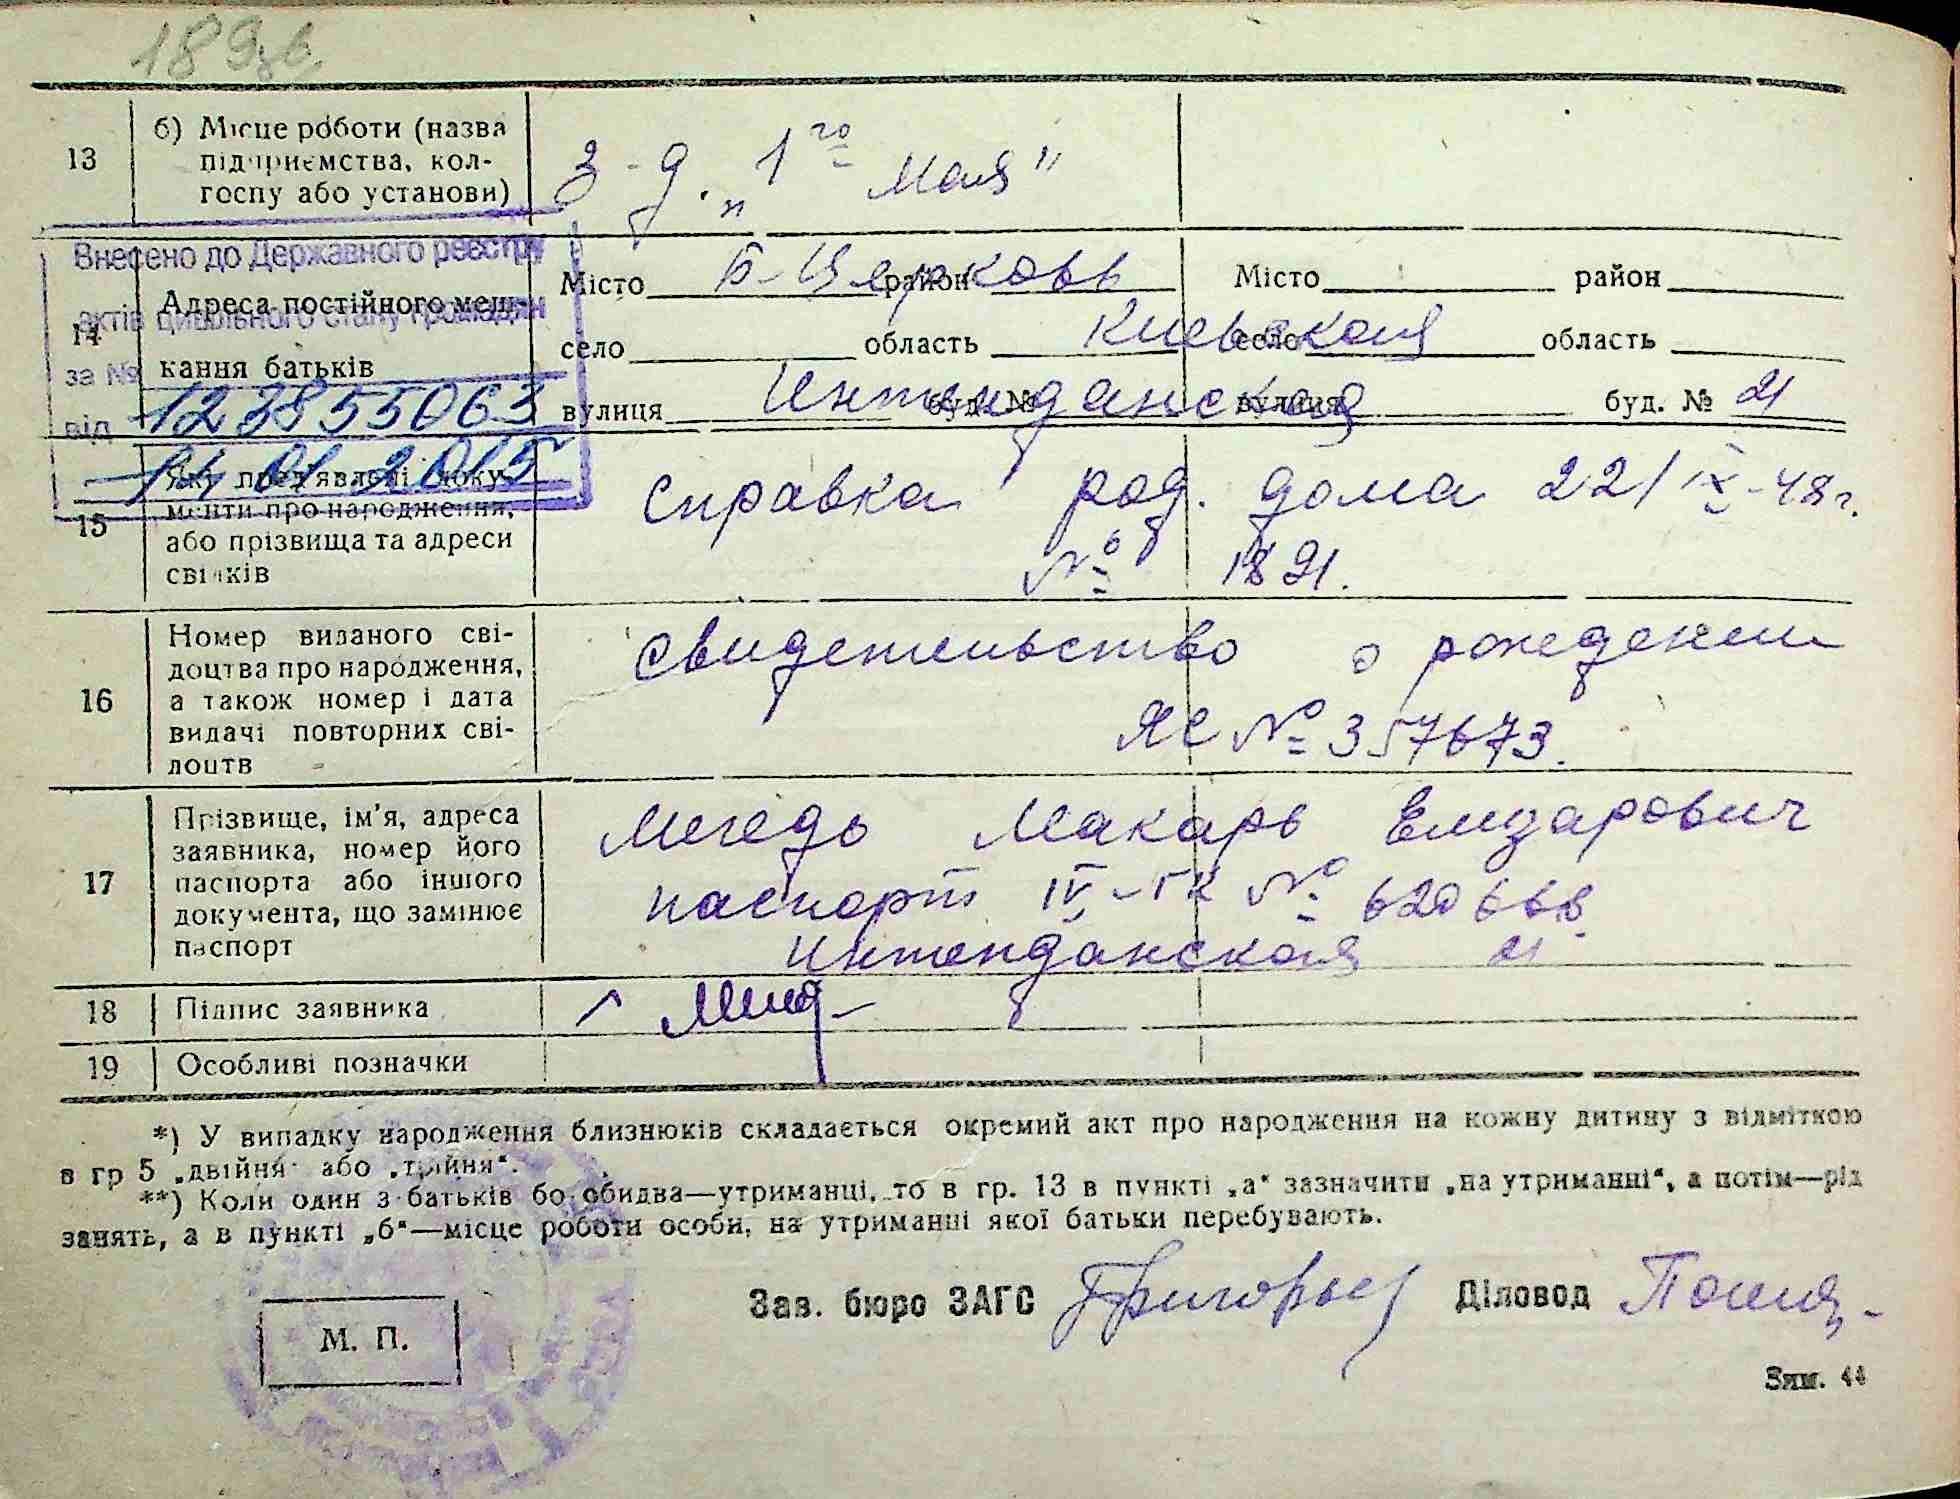 189зв
13
б) Місце роботи (назва
підприємства, кол-
госпу або установи)
З-д. „1го Мая"
Внесено до Державного реєстру
актів цивільного стану громадян
за № 123855063
від 14 01 2015
14
Адреса постійного меш-
кання батьків
Місто Б-Церковь район
село область Киевская
вулиця Интенданская буд. №
Місто район
село область
вулиця буд. № 21
15
Які пред'явлені доку-
менти про народження,
або прізвища та адреси
свідків
Справка род. дома 22/IX-48г.
№ 1821.
16
Номер виданого сві-
доцтва про народження,
а також номер і дата
видачі повторних сві-
доцтв
Свидетельство о рождении
ЯС № 357673.
17
Прізвище, ім'я, адреса
заявника, номер його
паспорта або іншого
документа, що замінює
паспорт
Мегедь Макарь Елизарович
паспорт IV-ГК № 620668
Интенданская 21
18
Підпис заявника
19
Особливі позначки
*) У випадку народження близнюків складається окремий акт про народження на кожну дитину з відміткою
в гр 5 „двійня" або „трійня".
**) Коли один з батьків бо обидва—утриманці, то в гр. 13 в пункті „а" зазначити „на утриманні", а потім—рід
занять, а в пункті „б"—місце роботи особи, на утриманні якої батьки перебувають.
Зав. бюро ЗАГС Григорьев Діловод
М. П.
Зам. 44